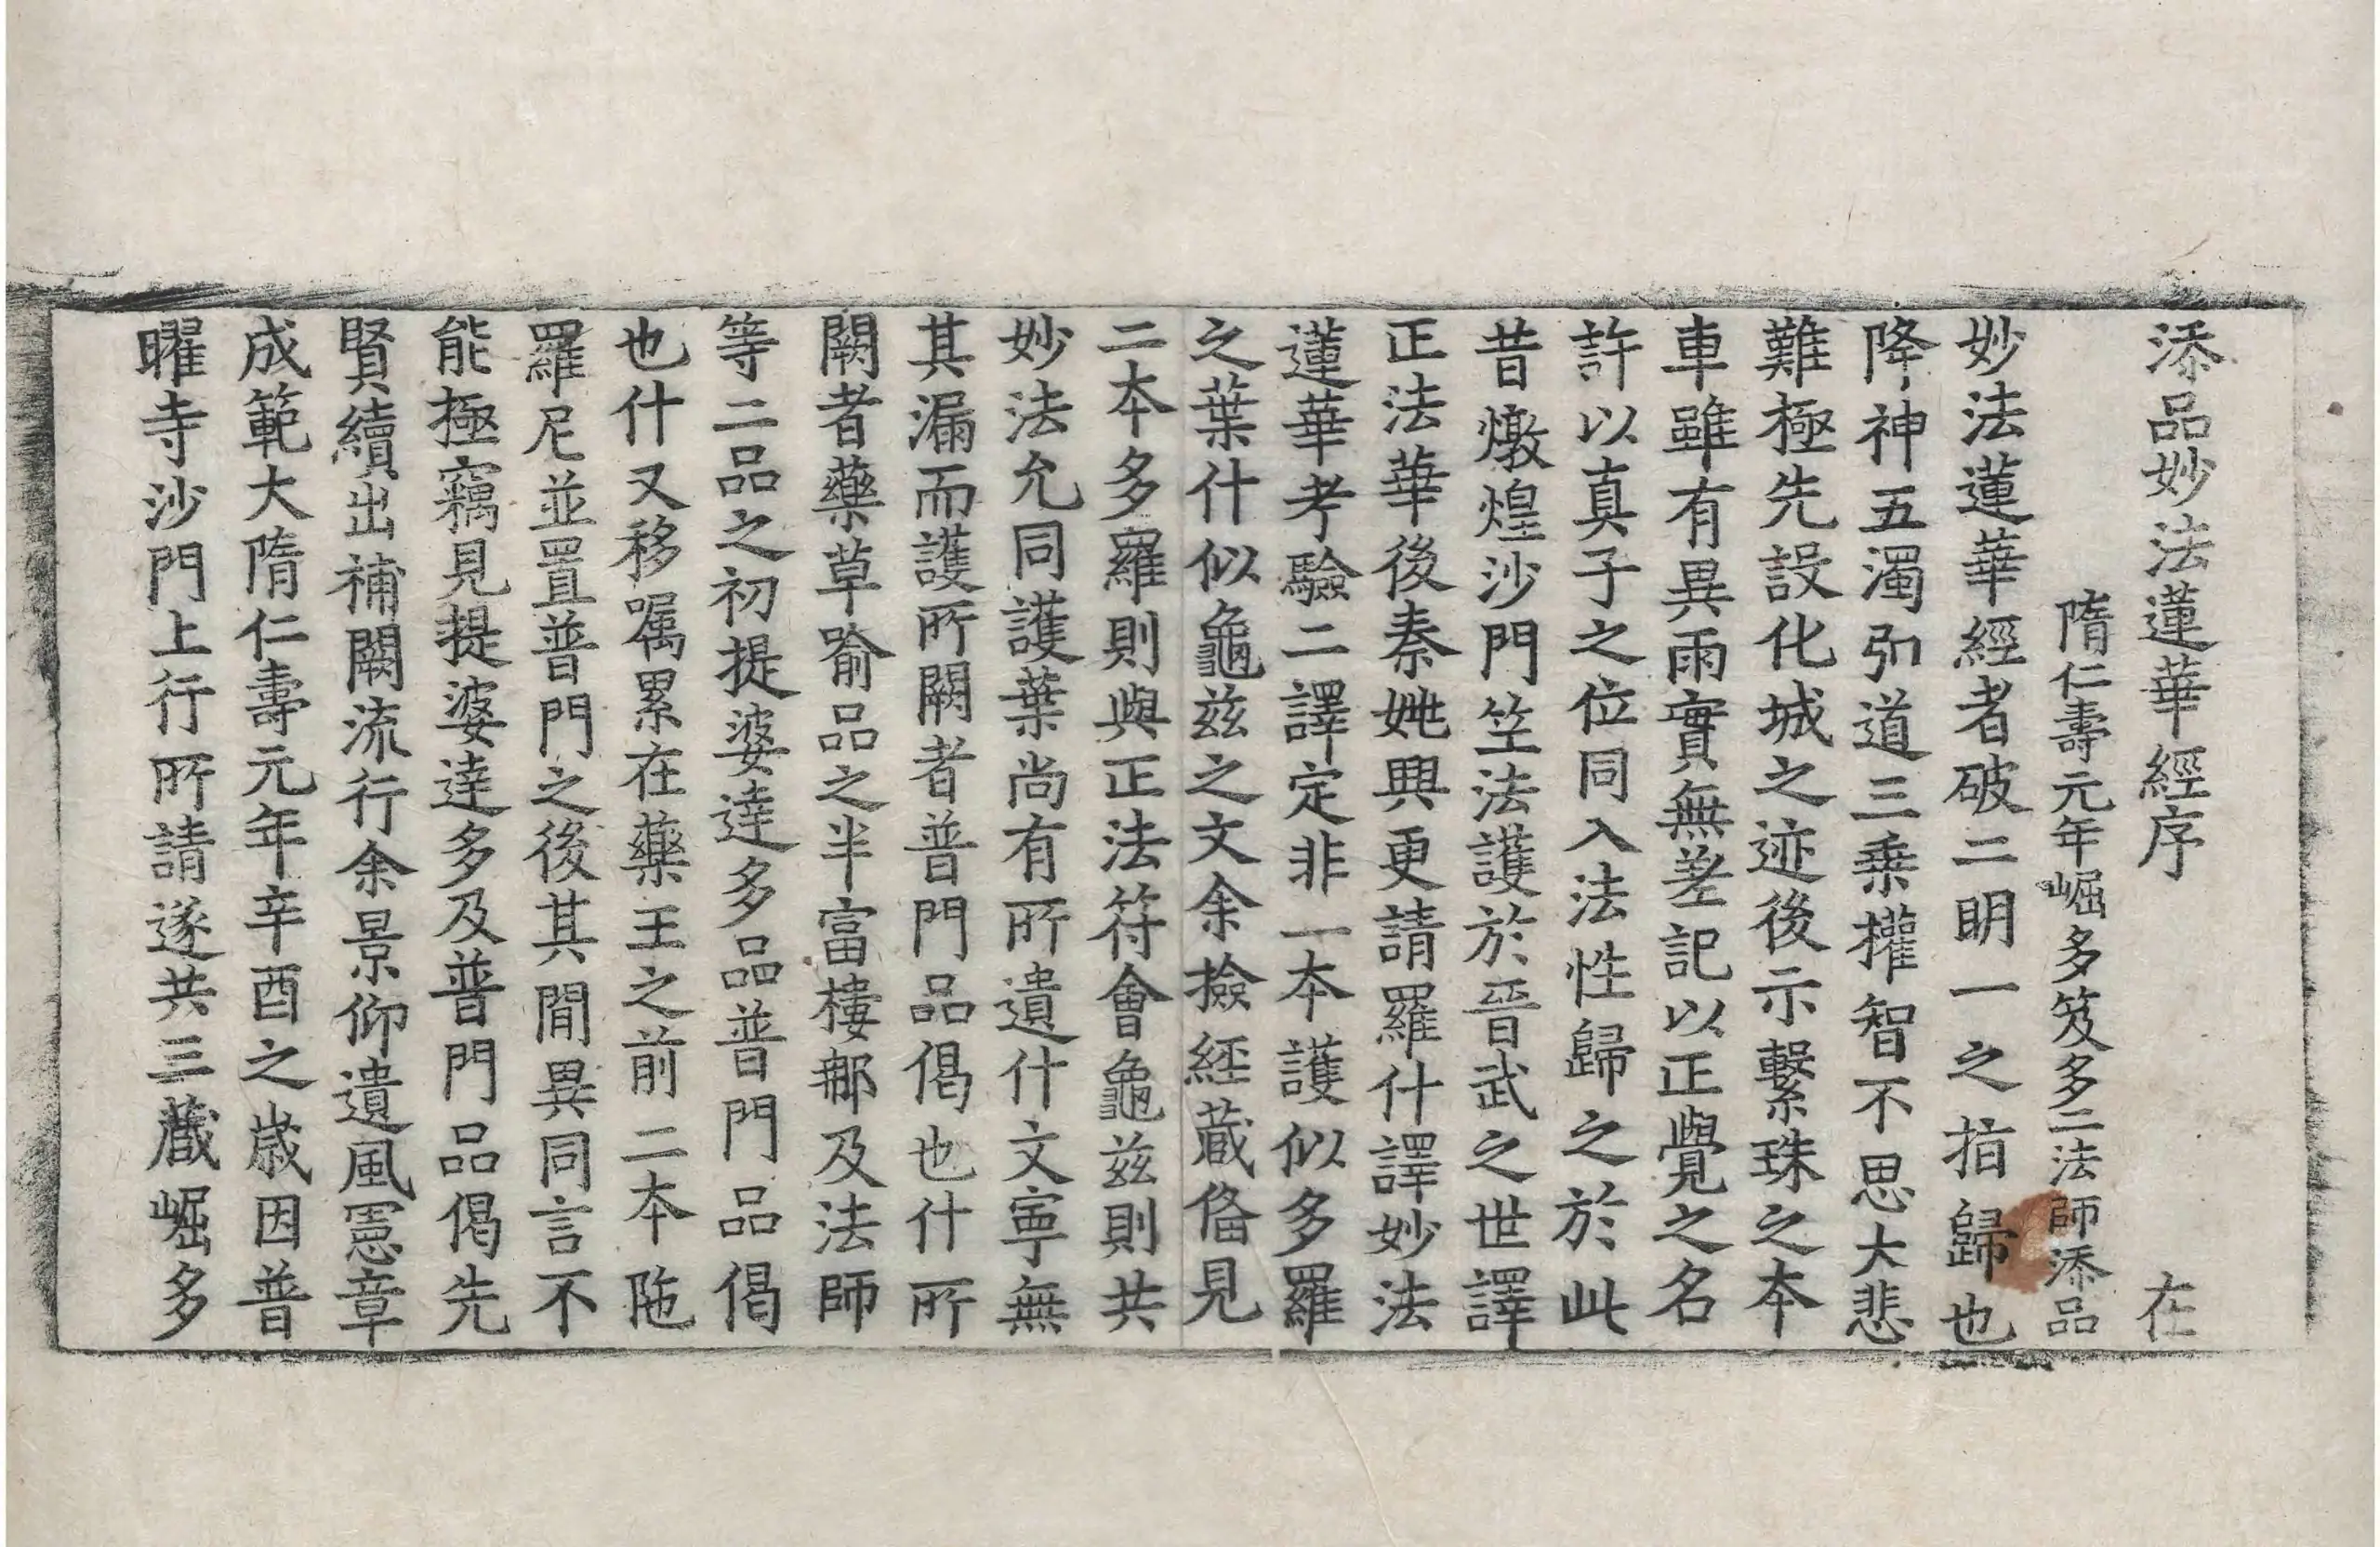 添品妙法蓮華經序 在
隋仁壽元年崛多笈多二法師添品
妙法蓮華經者破二明一之指歸也
降神五濁引道三乘權智不思大悲
難極先設化城之迹後示繫珠之本
車雖有異雨實無差記以正覺之名
許以真子之位同入法性歸之於此
昔燉煌沙門竺法護於晉武之世譯
正法華後秦姚興更請羅什譯妙法
蓮華考驗二譯定非一本護似多羅
之葉什似龜兹之文余撿經藏俻見
二本多羅則與正法符會龜兹則共
妙法允同護葉尚有所遺什文寧無
其漏而護所闕者普門品偈也什所
闕者藥草喻品之半富樓那及法師
等二品之初提婆達多品普門品偈
也什又移嘱累在藥王之前二本陁
羅尼並置普門之後其閒異同言不
能極竊見提婆達多及普門品偈先
賢續出補闕流行余景仰遺風憲章
成範大隋仁壽元年辛酉之歲因普
曜寺沙門上行所請遂共三藏崛多